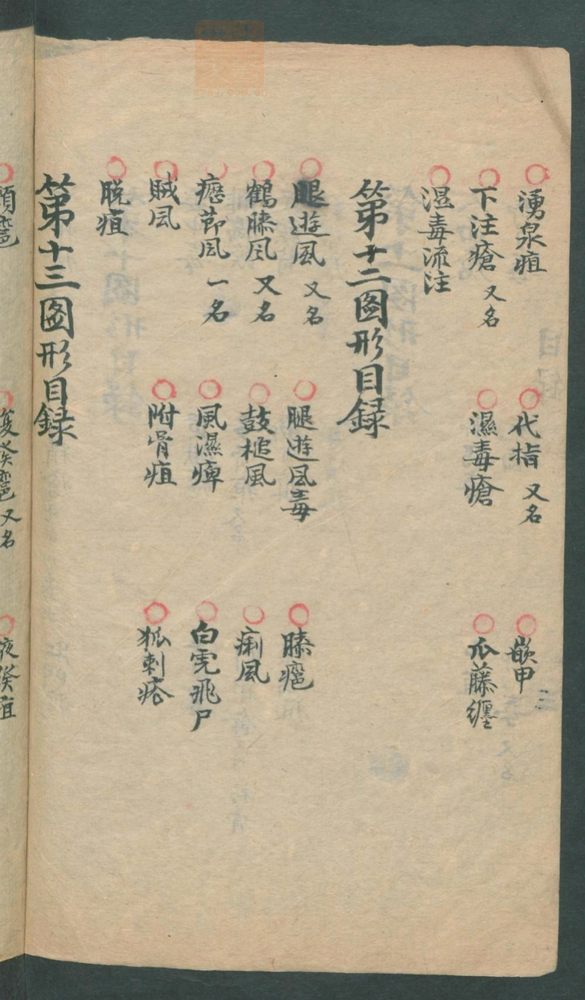 湧泉疽　代指 又名　嵌甲
下注瘡 又名　濕毒瘡　瓜藤纏
湿毒流注
第十二圖形目録
腿遊風 又名　腿遊风毒　膝瘡
鶴膝风 又名　鼓槌風　痢風
癧節風 一名　風濕痺　白虎飛尸
賊風　附骨疽　狐刺瘡
脱疽
第十三圖形目録
又名